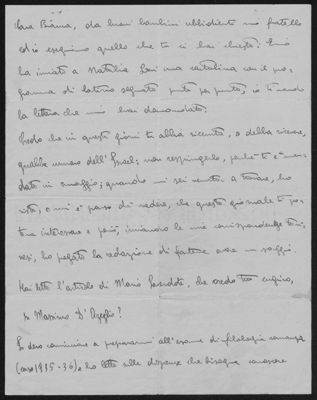 Cara Bianca, da buoni bambini ubbidienti mio fratello
ed io eseguimmo quello che tu ci hai chiesto: Enio
ha inviato a Natalia una cartolina con il pro=
gramma di latino segnato punto per punto, io ti mando
la lettera che mi hai domandato.
Credo che in questi giorni tu abbia ricevuto, o debba ricevere,
qualche numero dell'Israel; non respingerlo, perché ti è man=
dato in omaggio; quando mi sei venuta a trovare, ho
visto, o mi è parso di vedere, che questo giornale ti po=
teva interessare e perciò, inviando le mie corrispondenze
ho pregato la redazione di fartene avere un saggio.
Hai letto l'articolo di Mario che credo tuo cugino,
su Massimo D'Azeglio?
Io devo cominciare a prepararmi all'esame di filologia romanza
(corso 1935-36) e ho letto sulle dispense che bisogna conoscere